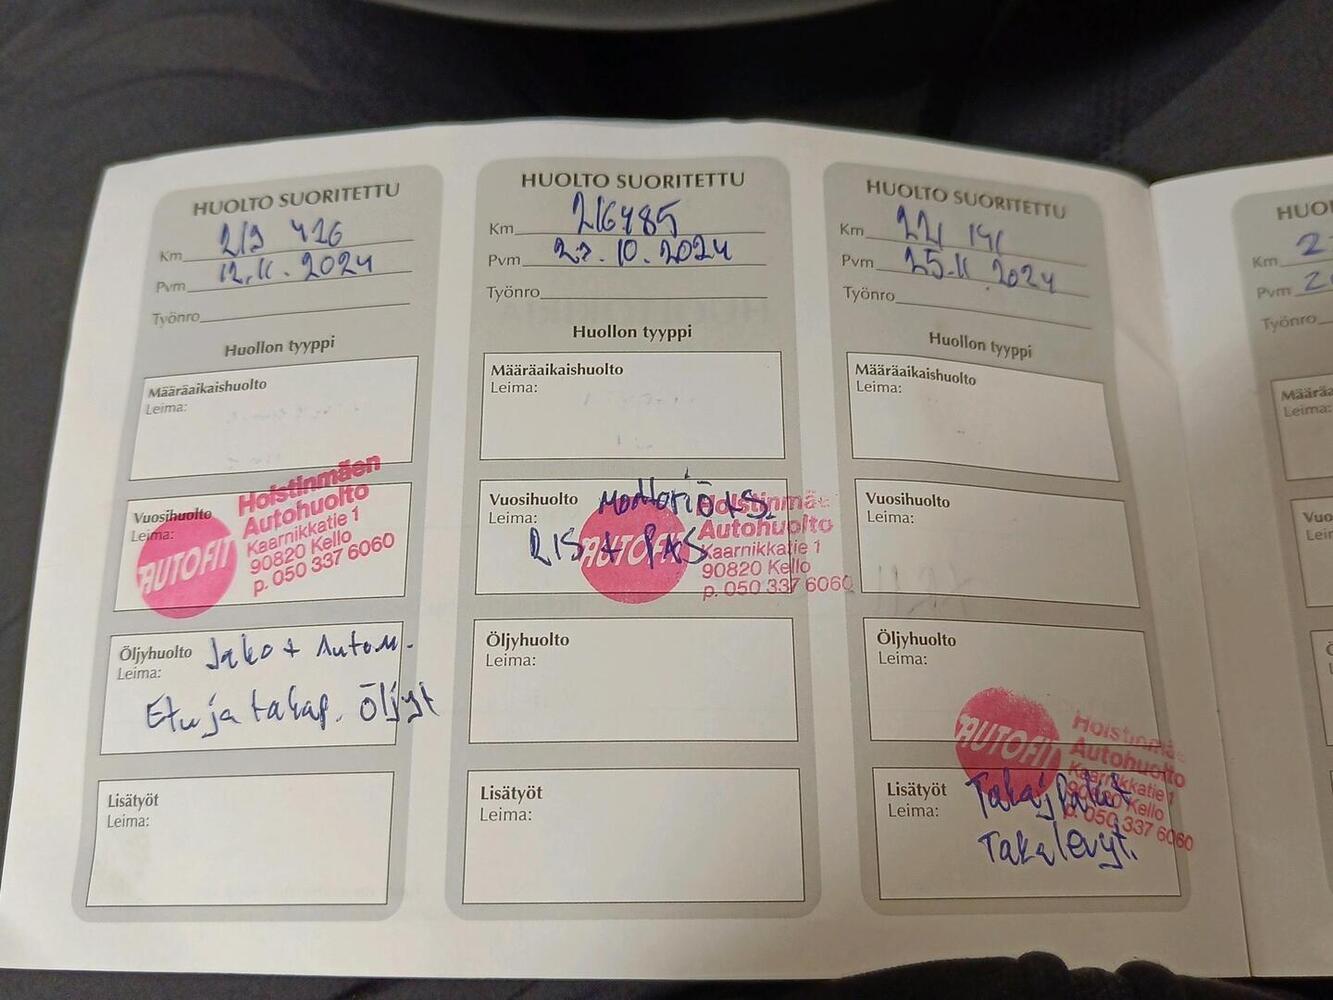 HUOLTO SUORITETTU
Km 219 426
Pvm 12.11.2024
Työnro
Huollon tyyppi
Määräaikaishuolto
Leima:
Vuosihuolto
Leima:
AUTOFIT
Hoistinmäen
Autohuolto
Kaarnikkatie 1
90820 Kello
p. 050 337 6060
Öljyhuolto Jako + Autom.
Leima:
Etu ja takap. öljyt
Lisätyöt
Leima:
HUOLTO SUORITETTU
Km 216485
Pvm 22.10.2024
Työnro
Huollon tyyppi
Määräaikaishuolto
Leima:
Vuosihuolto Moottoriö + S.
Leima:
RIS + PAS
AUTOFIT
Hoistinmäe
Autohuolto
Kaarnikkatie 1
90820 Kello
p. 050 337 6060
Öljyhuolto
Leima:
Lisätyöt
Leima:
HUOLTO SUORITETTU
Km 221 141
Pvm 25.11.2024
Työnro
Huollon tyyppi
Määräaikaishuolto
Leima:
Vuosihuolto
Leima:
Öljyhuolto
Leima:
AUTOFIT
Hoistinmäe
Autohuolto
Kaarnikkatie 1
90820 Kello
p. 050 337 6060
Lisätyöt
Leima:
Takajpalat
Takalevyt.
HUOL
Km 2
Pvm 2
Työnro
Määräa
Leima:
Vuo
Lei